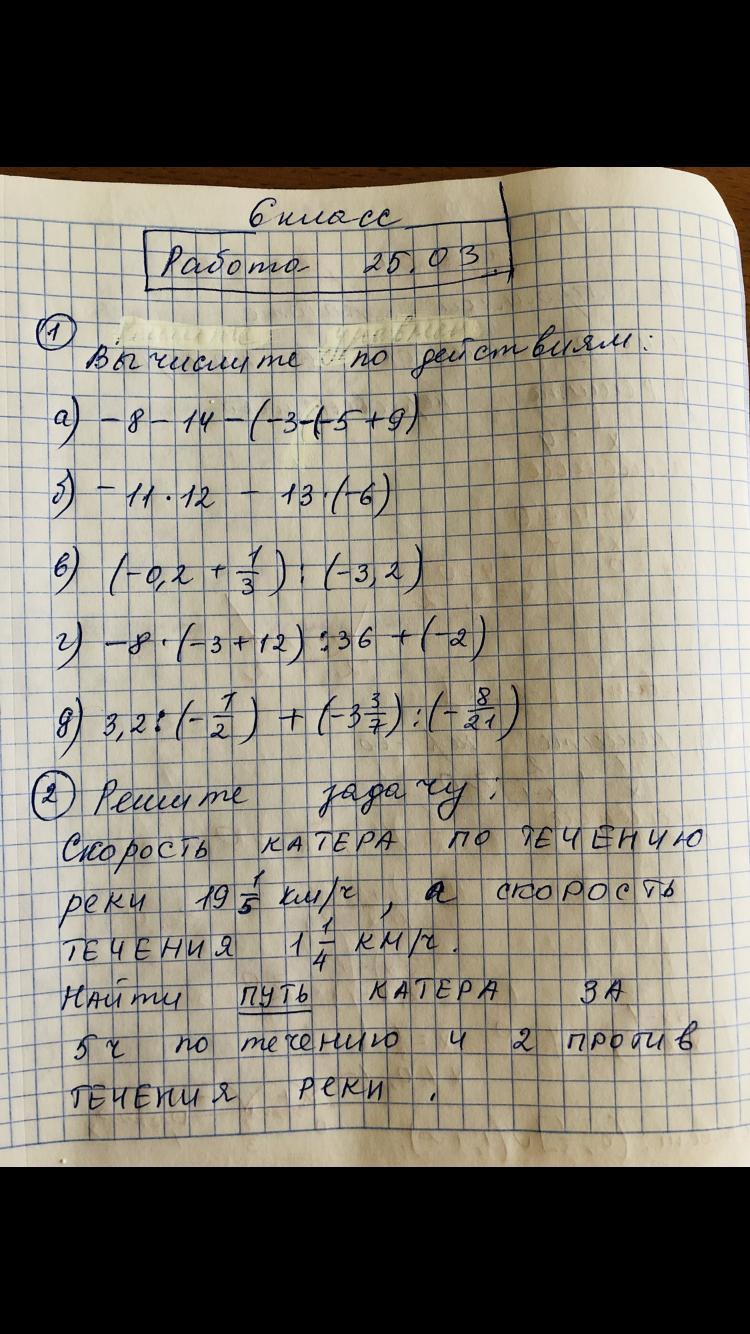 6 класс
Работа 25.03.
1 Вычислите по действиям:
а) -8-14-(-3-(-5+9)
б) -11·12 - 13·(-6)
в) (-0,2 + 1/3) : (-3,2)
г) -8·(-3+12):36+(-2)
д) 3,2:(-1/2) + (-3 3/7):(-8/21)
2 Решите задачу:
Скорость катера по течению
реки 19 1/5 км/ч, а скорость
течения 1 1/4 км/ч.
Найти путь катера за
5 ч по течению и 2 против
течения реки.